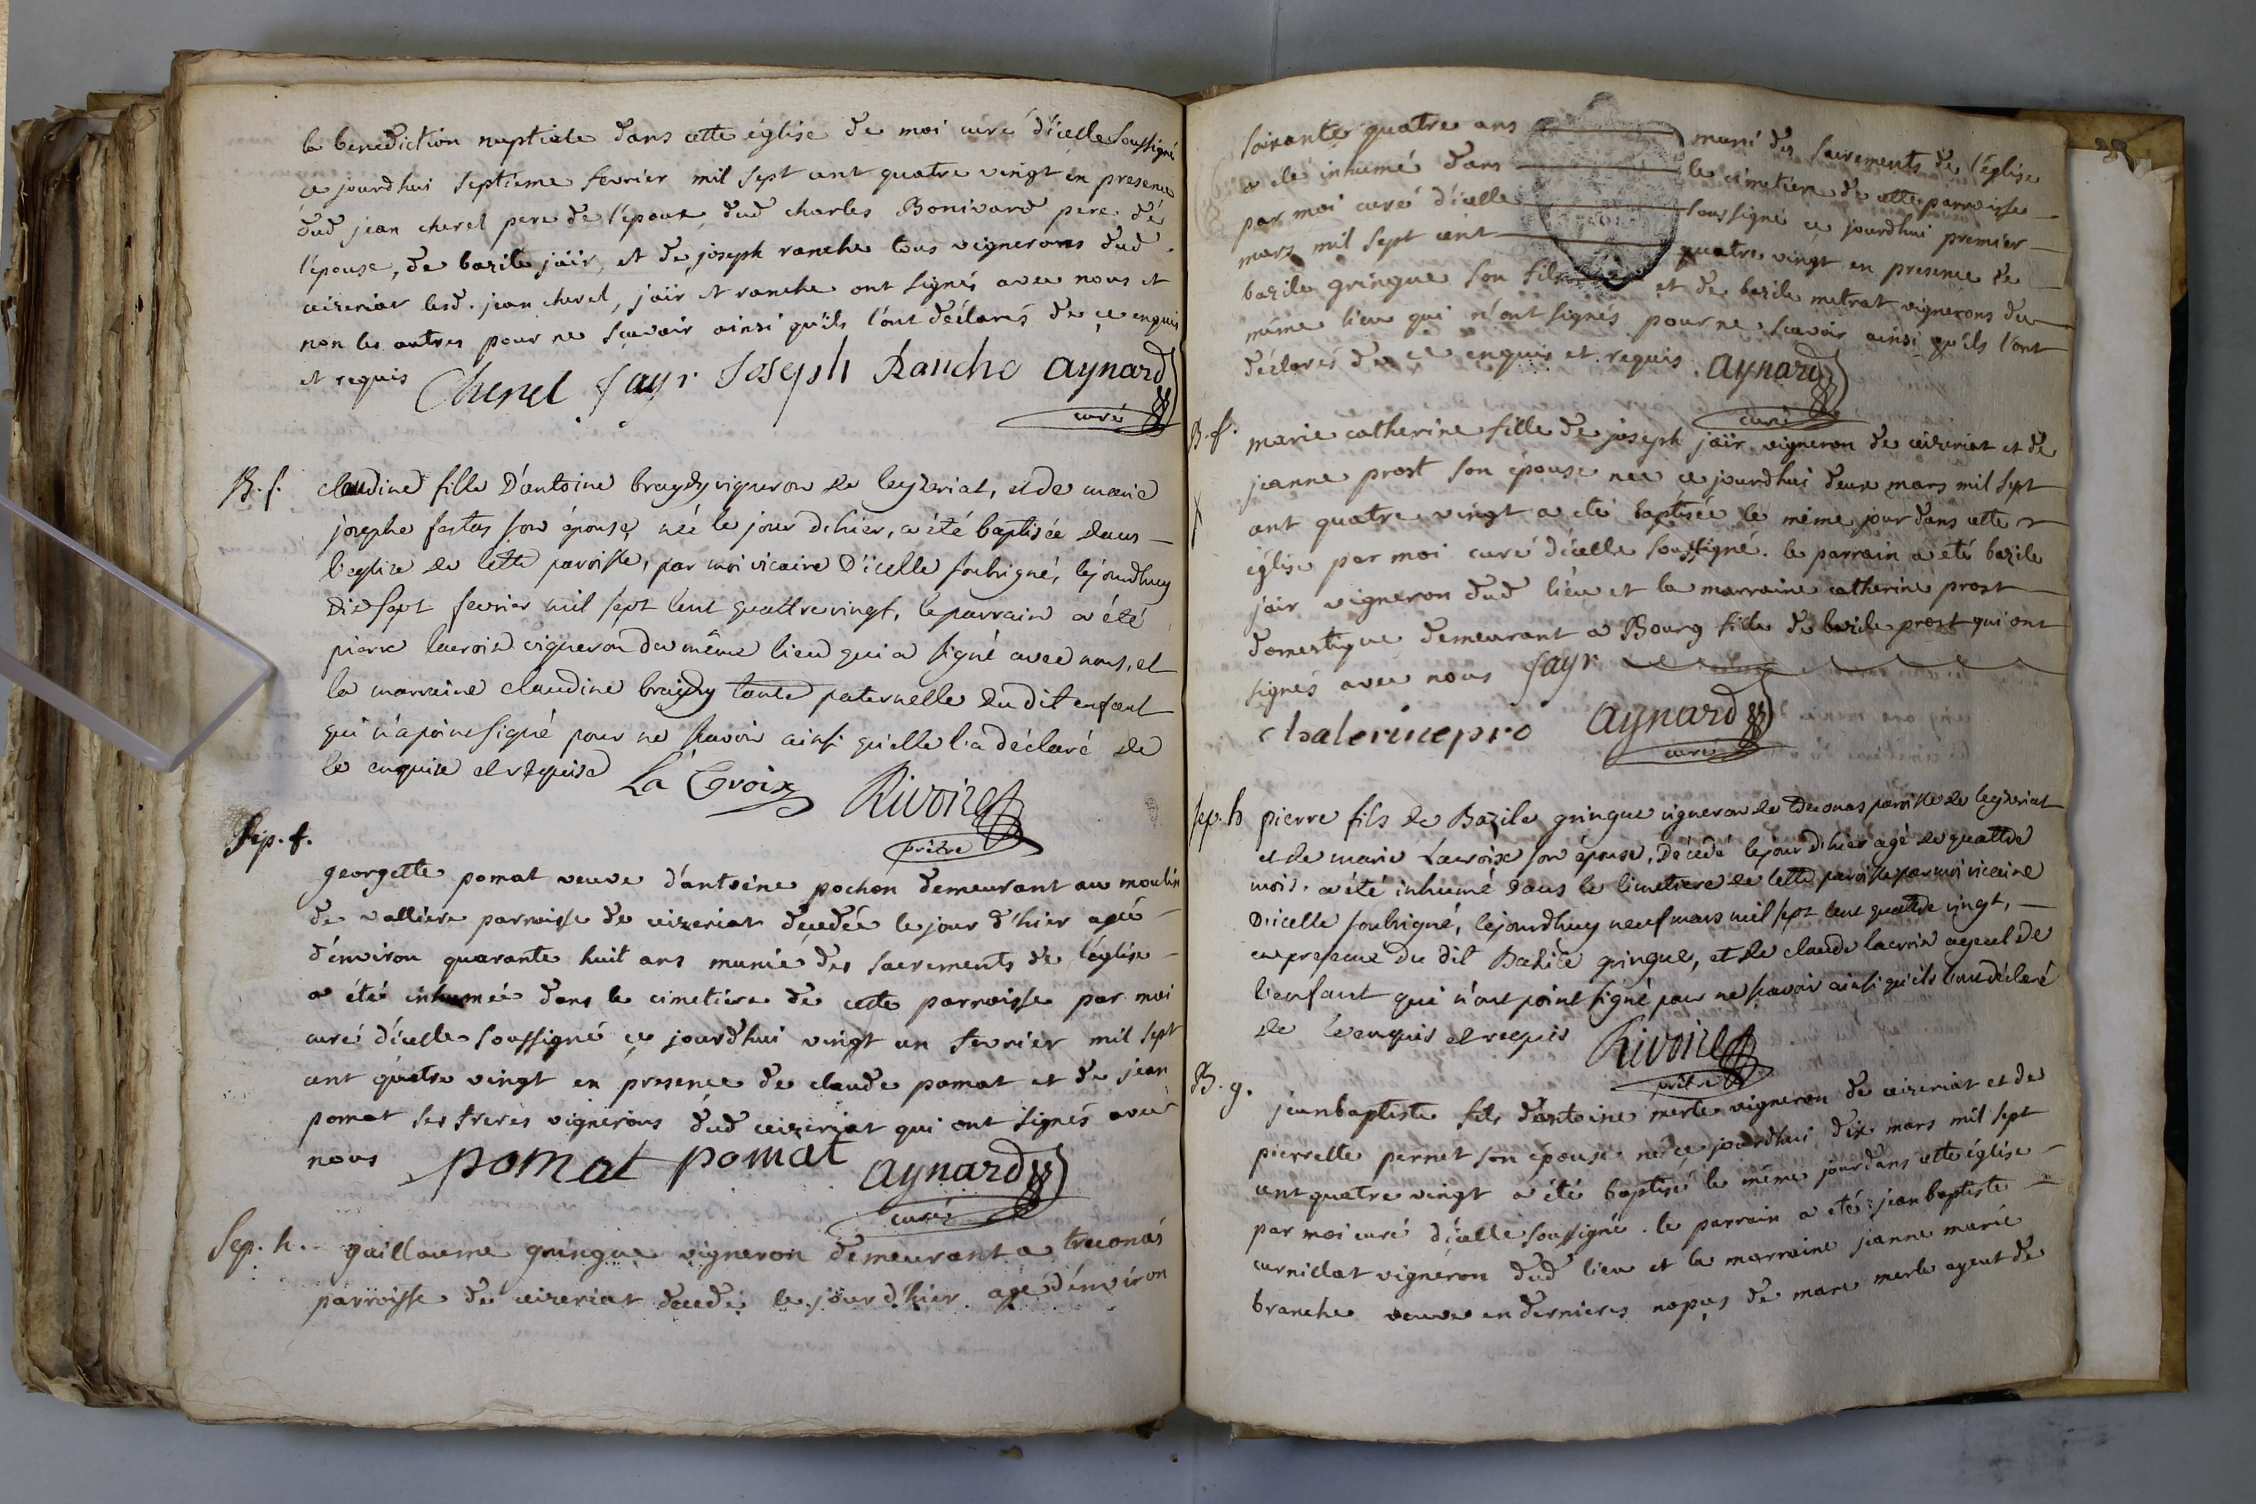 la benediction nuptiale dans cette église de moi curé d'icelle soussigné
ce jourdhui septieme fevrier mil sept cent quatre vingt en presence
dud jean cherel pere de l'epoux, dud charles Bonivard pere de
l'épouse, de bazile jäir, et de joseph ranche tous vignerons dud.
ceizeriat lesd. jean cherel, jäir et ranche ont signés avec nous et
non les autres pour ne sçavoir ainsi qu'ils l'ont déclarés de ce enquis
et requis Cherel Jayr Joseph Ranche Aynard
curé
B. f. claudine fille D'antoine bruydy vigneron de ceyzeriat, et de marie
josephe festas son épouse, née le jour dehier, a été baptisée dans
l'eglise de cette paroisse, par moi vicaire D'icelle soubsigné, cejourdhuy
Dixsept fevrier mil sept cent quattrevingt, le parrain a été
pierre lacroix vigneron du même lieu qui a signé avec nous, et
la marraine claudine bruydy tante paternelle du dit enfant
qui n'a point signé pour ne scavoir ainsi qu'elle l'a déclaré de
ce enquise et requise La Croix Rivoire
prêtre
Sep. f.
georgette pomat veuve d'antoine pochon demeurant au moulin
de valliere parroisse de ceizeriat decedée le jour d'hier agée
d'environ quarante huit ans munie des sacrements de l'église
a été inhumée dans le cimetiere de cette parroisse par moi
curé d'icelle soussigné ce jourdhui vingt un fevrier mil sept
cent quatre vingt en presence de claude pomat et de jean
pomat ses freres vignerons dud ceizeriat qui ont signés avec
nous pomat pomat aynard
curé
Sep. h. guillaume gringue vigneron demeurant a treconas
parroisse de ceizeriat decedé le jour d'hier agé d'environ
soixante quatre ans muni des sacrements de l'église
a eté inhumé dans le cimetiere de cette parroisse
par moi curé d'icelle soussigné ce jourdhui premier
mars mil sept cent quatre vingt en presence de
bazile gringue son fils et de bazile metrat vignerons du
même lieu qui n'ont signés pour ne scavoir ainsi qu'ils l'ont
déclarés de ce enquis et requis. Aynard
curé
B. f. marie catherine fille de joseph jäir vigneron de ceizeriat et de
jeanne prost son épouse née ce jourdhui deux mars mil sept
cent quatre vingt a eté baptisée le même jour dans cette
église par moi curé d'icelle soussigné. le parrain a eté bazile
jäir vigneron dud lieu et la marraine catherine prost
domestique demeurant a Bourg fille de bazile prost qui ont
signés avec nous Jayr
chaterine pro Aynard
curé
sep. h pierre fils de Bazile gringue vigneron de treconas paroisse de ceyzeriat
et de marie Lacroix son épouse, Décédé le jour d'hier agé de quattre
mois. a été inhumé dans le cimetiere de cette paroisse par moi vicaire
D'icelle soubsigné, cejourdhuy neuf mars mil sept cent quatre vingt,
en presence du dit Bazile gringue, et de claude lacroix ayeul de
l'enfant qui n'ont point signé pour ne scavoir ainsi qu'ils l'ont déclaré
de ce enquis et requis Rivoire
prêtre
B. g. jeanbaptiste fils d'antoine merle vigneron de ceizeriat et de
pierrette pernet son épouse né ce jourdhui dix mars mil sept
cent quatre vingt a été baptisé le même jour dans cette église
par moi curé d'icelle soussigné. le parrain a eté jeanbaptiste
curnillat vigneron dud lieu et la marraine jeanne marie
branche veuve en dernieres nopces de marc merle ayeul de